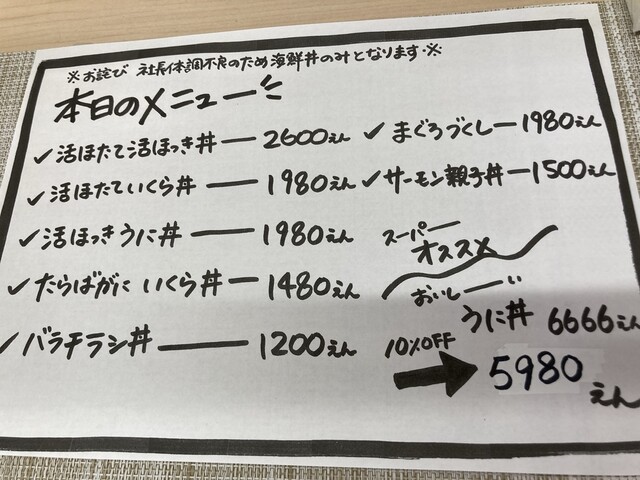 ※お詫び 社長体調不良のため海鮮丼のみとなります※
本日のメニュー
✓活ほたて活ほっき丼ー2600えん
✓活ほたていくら丼ー1980えん
✓活ほっきうに丼ー1980えん
✓たらばがにいくら丼ー1480えん
✓バラチラシ丼ー1200えん
✓まぐろづくしー1980えん
✓サーモン親子丼ー1500えん
スーパー
オススメ
おいしーーい
うに丼 6666えん
10%OFF
➡5980えん